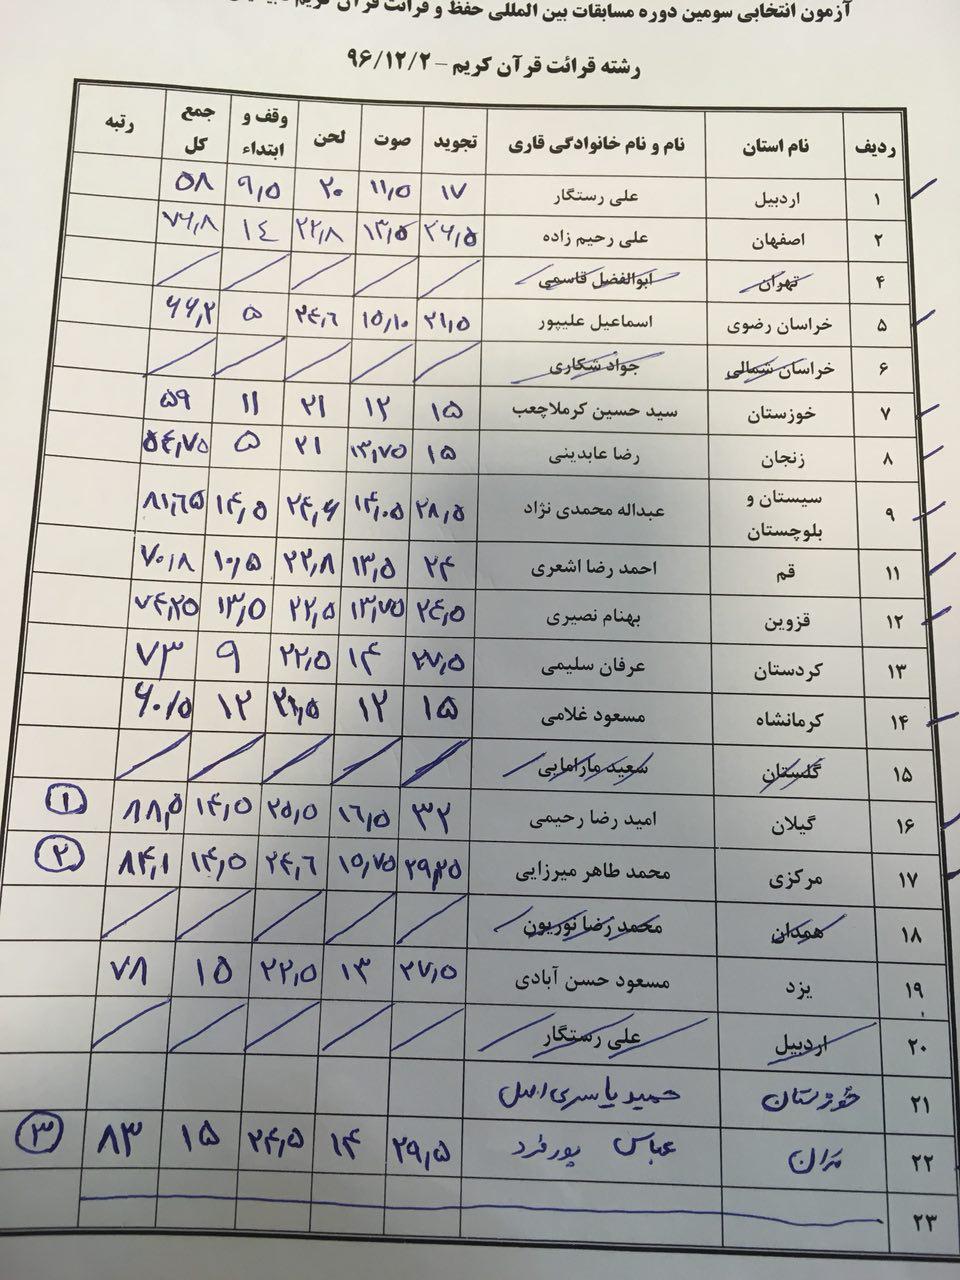 آزمون انتخابی سومین دوره مسابقات بین المللی حفظ و قرائت قرآن کریم
رشته قرائت قرآن کریم – ۹۶/۱۲/۲
ردیف نام استان نام و نام خانوادگی قاری تجوید صوت لحن وقف و ابتداء جمع کل رتبه
۱ اردبیل علی رستگار ۱۷ ۱۱٫۵ ۲۰ ۹٫۵ ۵۸
۲ اصفهان علی رحیم زاده ۲۶٫۵ ۱۳٫۵ ۲۲٫۸ ۱۴ ۷۶٫۸
۴ تهران ابوالفضل قاسمی
۵ خراسان رضوی اسماعیل علیپور ۲۱٫۵ ۱۵٫۱۰ ۲۴٫۶ ۵ ۶۶٫۲
۶ خراسان شمالی جواد شکاری
۷ خوزستان سید حسین کرملاچعب ۱۵ ۱۲ ۲۱ ۱۱ ۵۹
۸ زنجان رضا عابدینی ۱۵ ۱۳٫۷۵ ۲۱ ۵ ۵۴٫۷۵
۹ سیستان و بلوچستان عبداله محمدی نژاد ۲۸٫۵ ۱۴٫۰۵ ۲۴٫۶ ۱۴٫۵ ۸۱٫۶۵
۱۱ قم احمد رضا اشعری ۲۴ ۱۳٫۵ ۲۲٫۸ ۱۰٫۵ ۷۰٫۸
۱۲ قزوین بهنام نصیری ۲۴٫۵ ۱۳٫۷۵ ۲۲٫۵ ۱۳٫۵ ۷۴٫۲۵
۱۳ کردستان عرفان سلیمی ۲۷٫۵ ۱۴ ۲۲٫۵ ۹ ۷۳
۱۴ کرمانشاه مسعود غلامی ۱۵ ۱۲ ۲۱٫۵ ۱۲ ۶۰٫۵
۱۵ گلستان سعید مارامایی
۱۶ گیلان امید رضا رحیمی ۳۲ ۱۶٫۵ ۲۵٫۵ ۱۴٫۵ ۸۸٫۵ ۱
۱۷ مرکزی محمد طاهر میرزایی ۲۹٫۲۵ ۱۵٫۷۵ ۲۴٫۶ ۱۴٫۵ ۸۴٫۱ ۲
۱۸ همدان محمد رضا نوریون
۱۹ یزد مسعود حسن آبادی ۲۷٫۵ ۱۳ ۲۲٫۵ ۱۵ ۷۸
۲۰ اردبیل علی رستگار
۲۱ خوزستان حمید یاسری اصل
۲۲ تهران عباس پورفرد ۲۹٫۵ ۱۴ ۲۴٫۵ ۱۵ ۸۳ ۳
۲۳